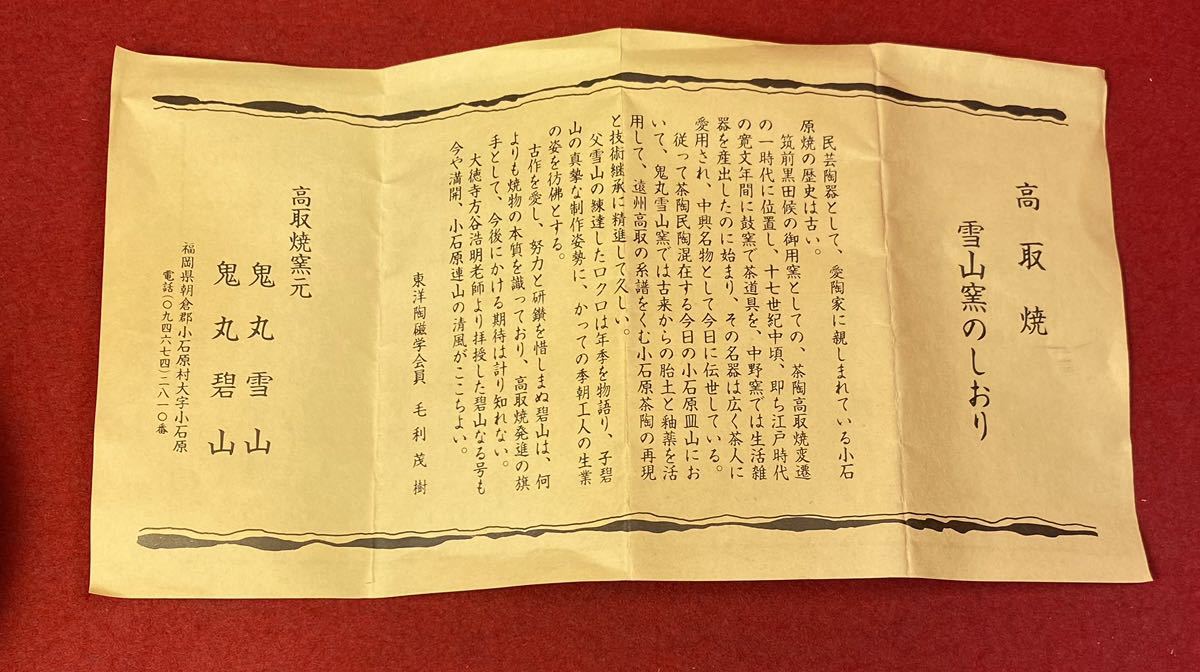 高取焼
雪山窯のしおり
民芸陶器として、愛陶家に親しまれている小石
原焼の歴史は古い。
筑前黒田候の御用窯としての、茶陶高取焼変遷
の一時代に位置し、十七世紀中頃、即ち江戸時代
の寛文年間に鼓窯で茶道具を、中野窯では生活雑
器を産出したのに始まり、その名器は広く茶人に
愛用され、中興名物として今日に伝世している。
従って茶陶民陶混在する今日の小石原皿山にお
いて、鬼丸雪山窯では古来からの胎土と釉薬を活
用して、遠州高取の系譜をくむ小石原茶陶の再現
と技術継承に精進して久しい。
父雪山の練達したロクロは年季を物語り、子碧
山の真摯な制作姿勢に、かっての李朝工人の生業
の姿を彷佛とする。
古作を愛し、努力と研鑽を惜しまぬ碧山は、何
よりも焼物の本質を識っており、高取焼発進の旗
手として、今後にかける期待は計り知れない。
大徳寺方谷浩明老師より拝授した碧山なる号も
今や満開、小石原連山の清風がここちよい。
東洋陶磁学会員 毛利茂樹
高取焼窯元
鬼丸雪山
鬼丸碧山
福岡県朝倉郡小石原村大字小石原
電話(〇九四六七四)二八一〇番